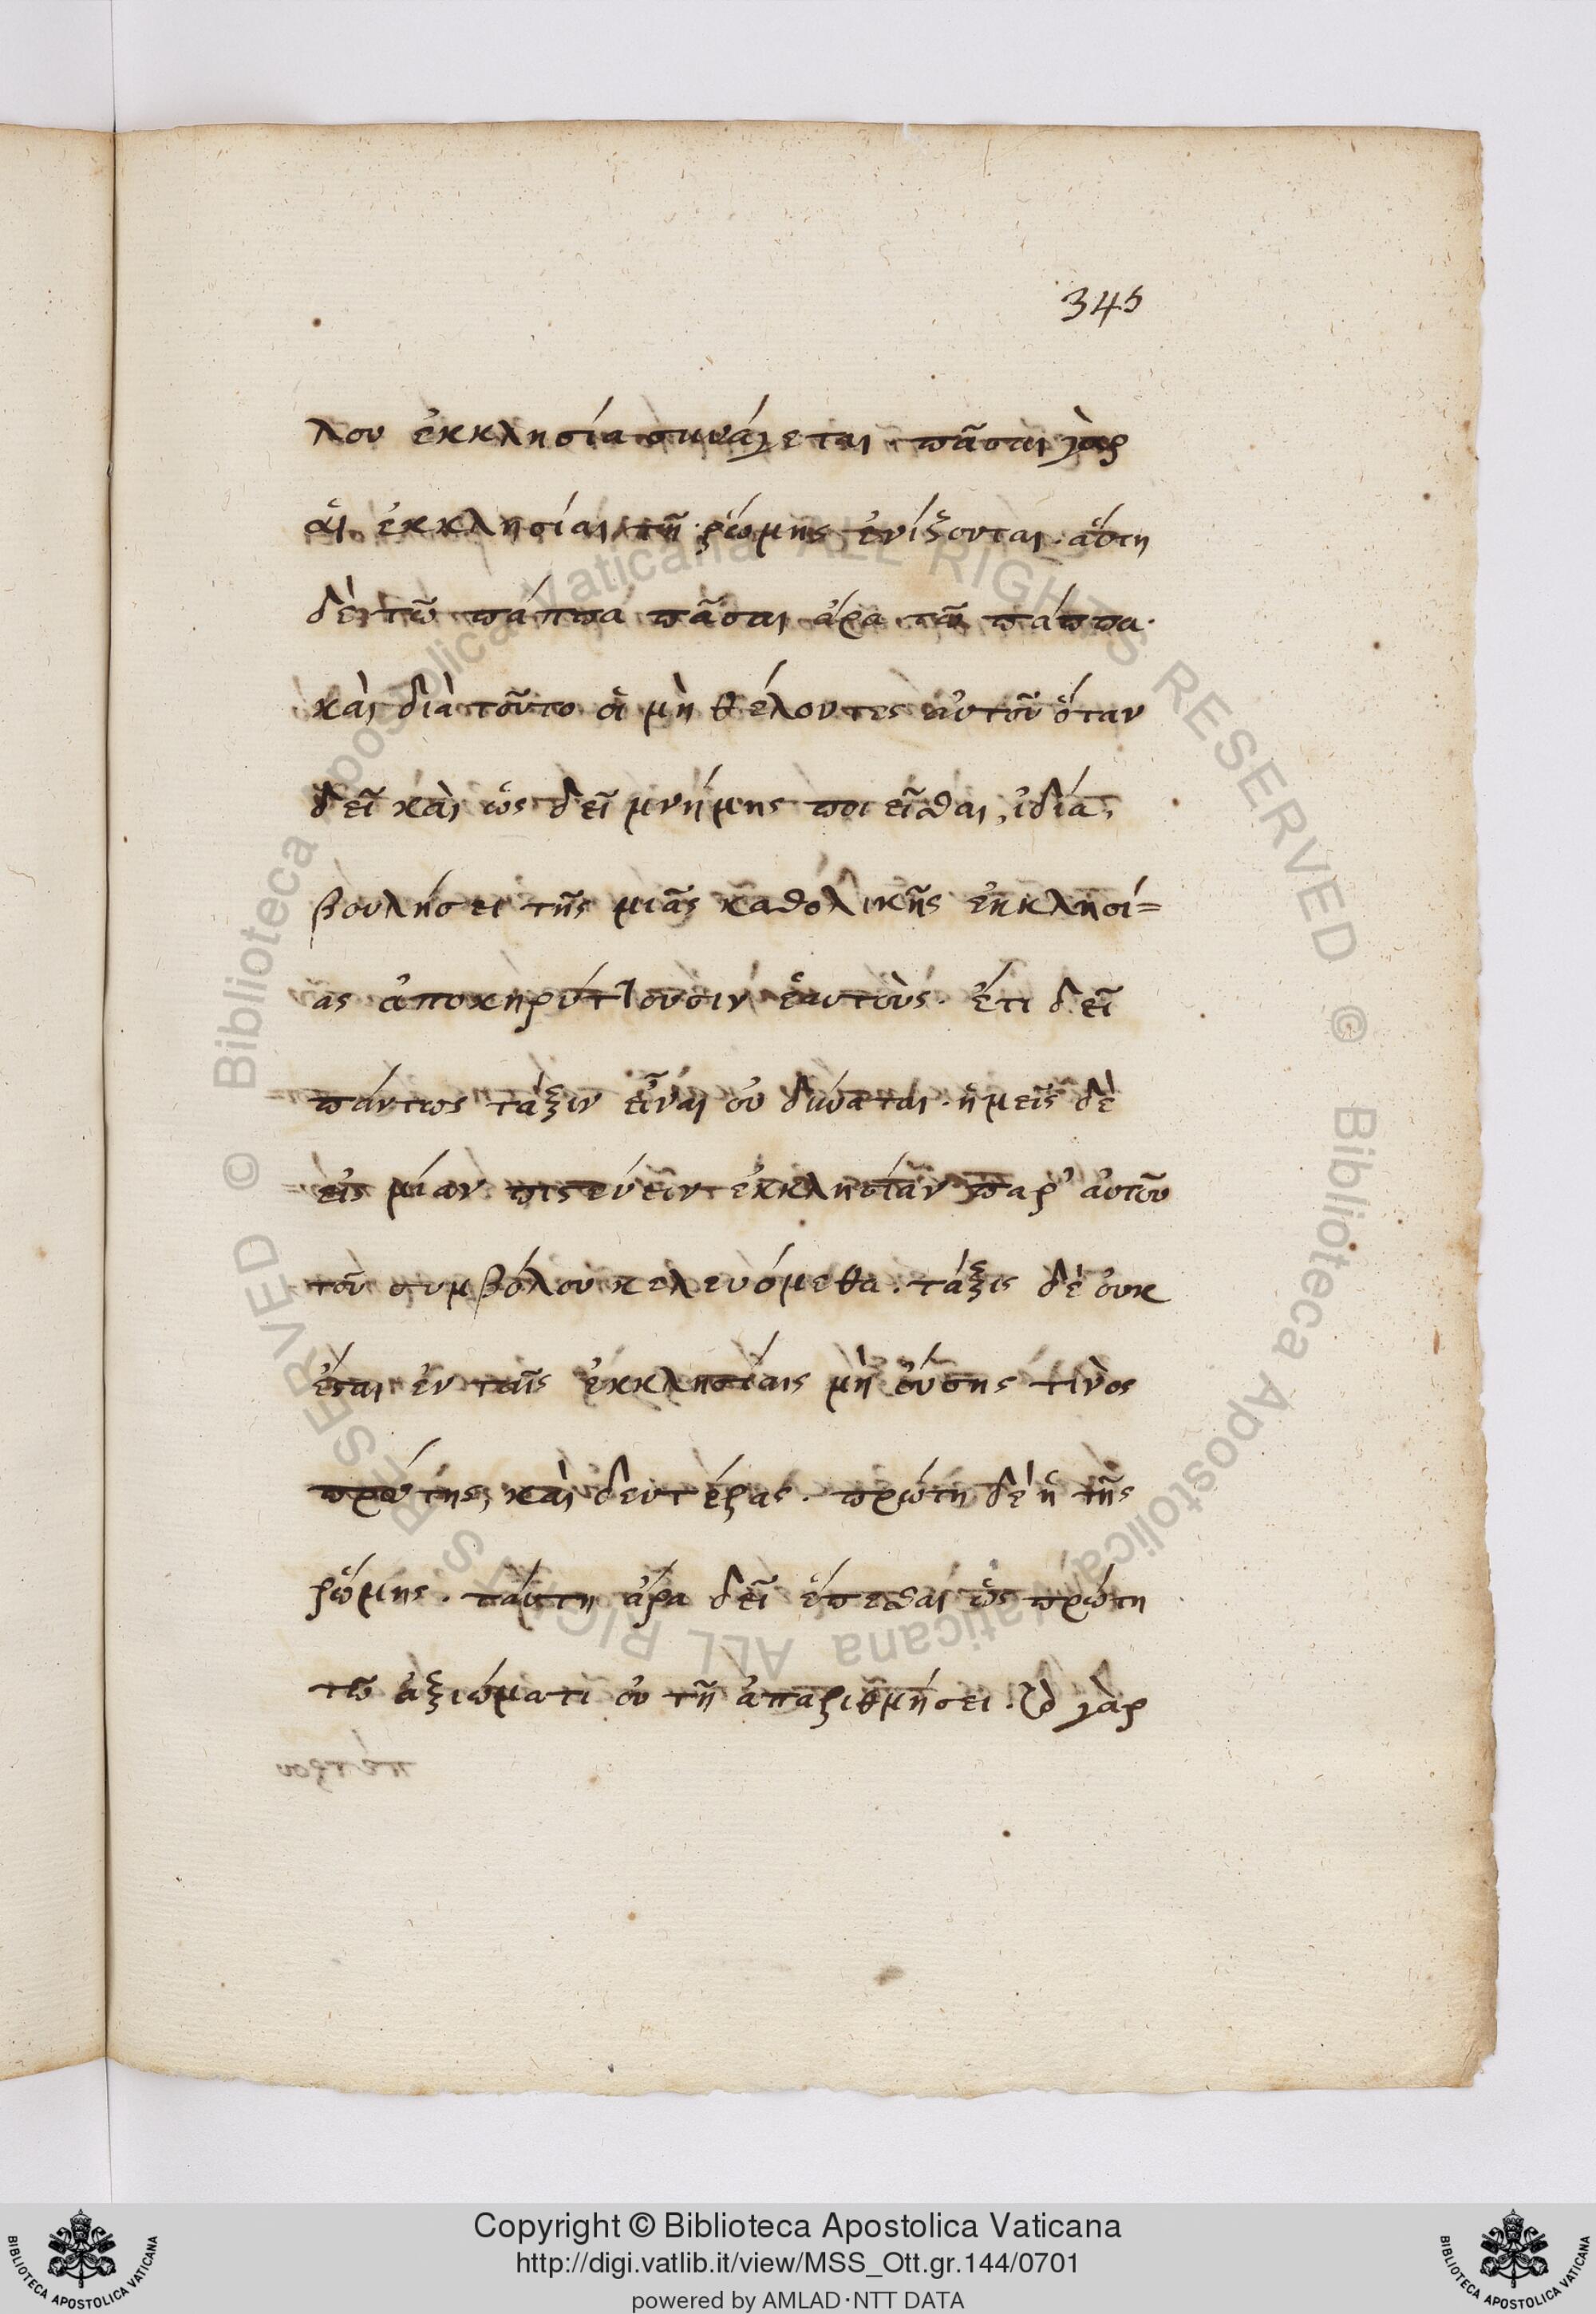 345
λου ἐκκλησία συνάγεται. πᾶσαι γὰρ
αἱ ἐκκλησίαι τῇ ῥώμης ἑνίζονται. αὕτη
δὲ τῶ πάππα πᾶσαι ἄρα τῶ πάππα.
καὶ διὰ τοῦτο οἱ μὴ θέλοντες αὐτοῦ ὅταν
δεῖ καὶ ὡς δεῖ μνήμης ποιεῖσθαι, ἰδία,
βουλήσει τῆς μιᾶς καθολικῆς ἐκκλησί=
ας ἀποκηρύττουσιν ἑαυτούς. ἔτι δεῖ
πάντως τάξιν εἶναι οὐ δύναται. ἡμεῖς δὲ
εἰς μίαν πιστεύειν ἐκκλησίαν παρ' αὐτοῦ
τοῦ συμβόλου κελευόμεθα. τάξις δὲ οὐκ
ἔσται ἐν ταῖς ἐκκλησίαις μὴ οὔσης τινὸς
πρώτης καὶ δευτέρας. πρώτη δὲ ἡ τῆς
ῥώμης. ταύτη ἄρα δεῖ ἕπεσθαι ὡς πρώτη
τῶ ἀξιώματι οὐ τῇ ἀπαριθμήσει. τὸ γὰρ
Copyright © Biblioteca Apostolica Vaticana
http://digi.vatlib.it/view/MSS_Ott.gr.144/0701
powered by AMLAD·NTT DATA
BIBLIOTECA APOSTOLICA VATICANA
BIBLIOTECA APOSTOLICA VATICANA
© Biblioteca Apostolica Vaticana ALL RIGHTS RESERVED © Biblioteca Apostolica Vaticana ALL RIGHTS RESERVED